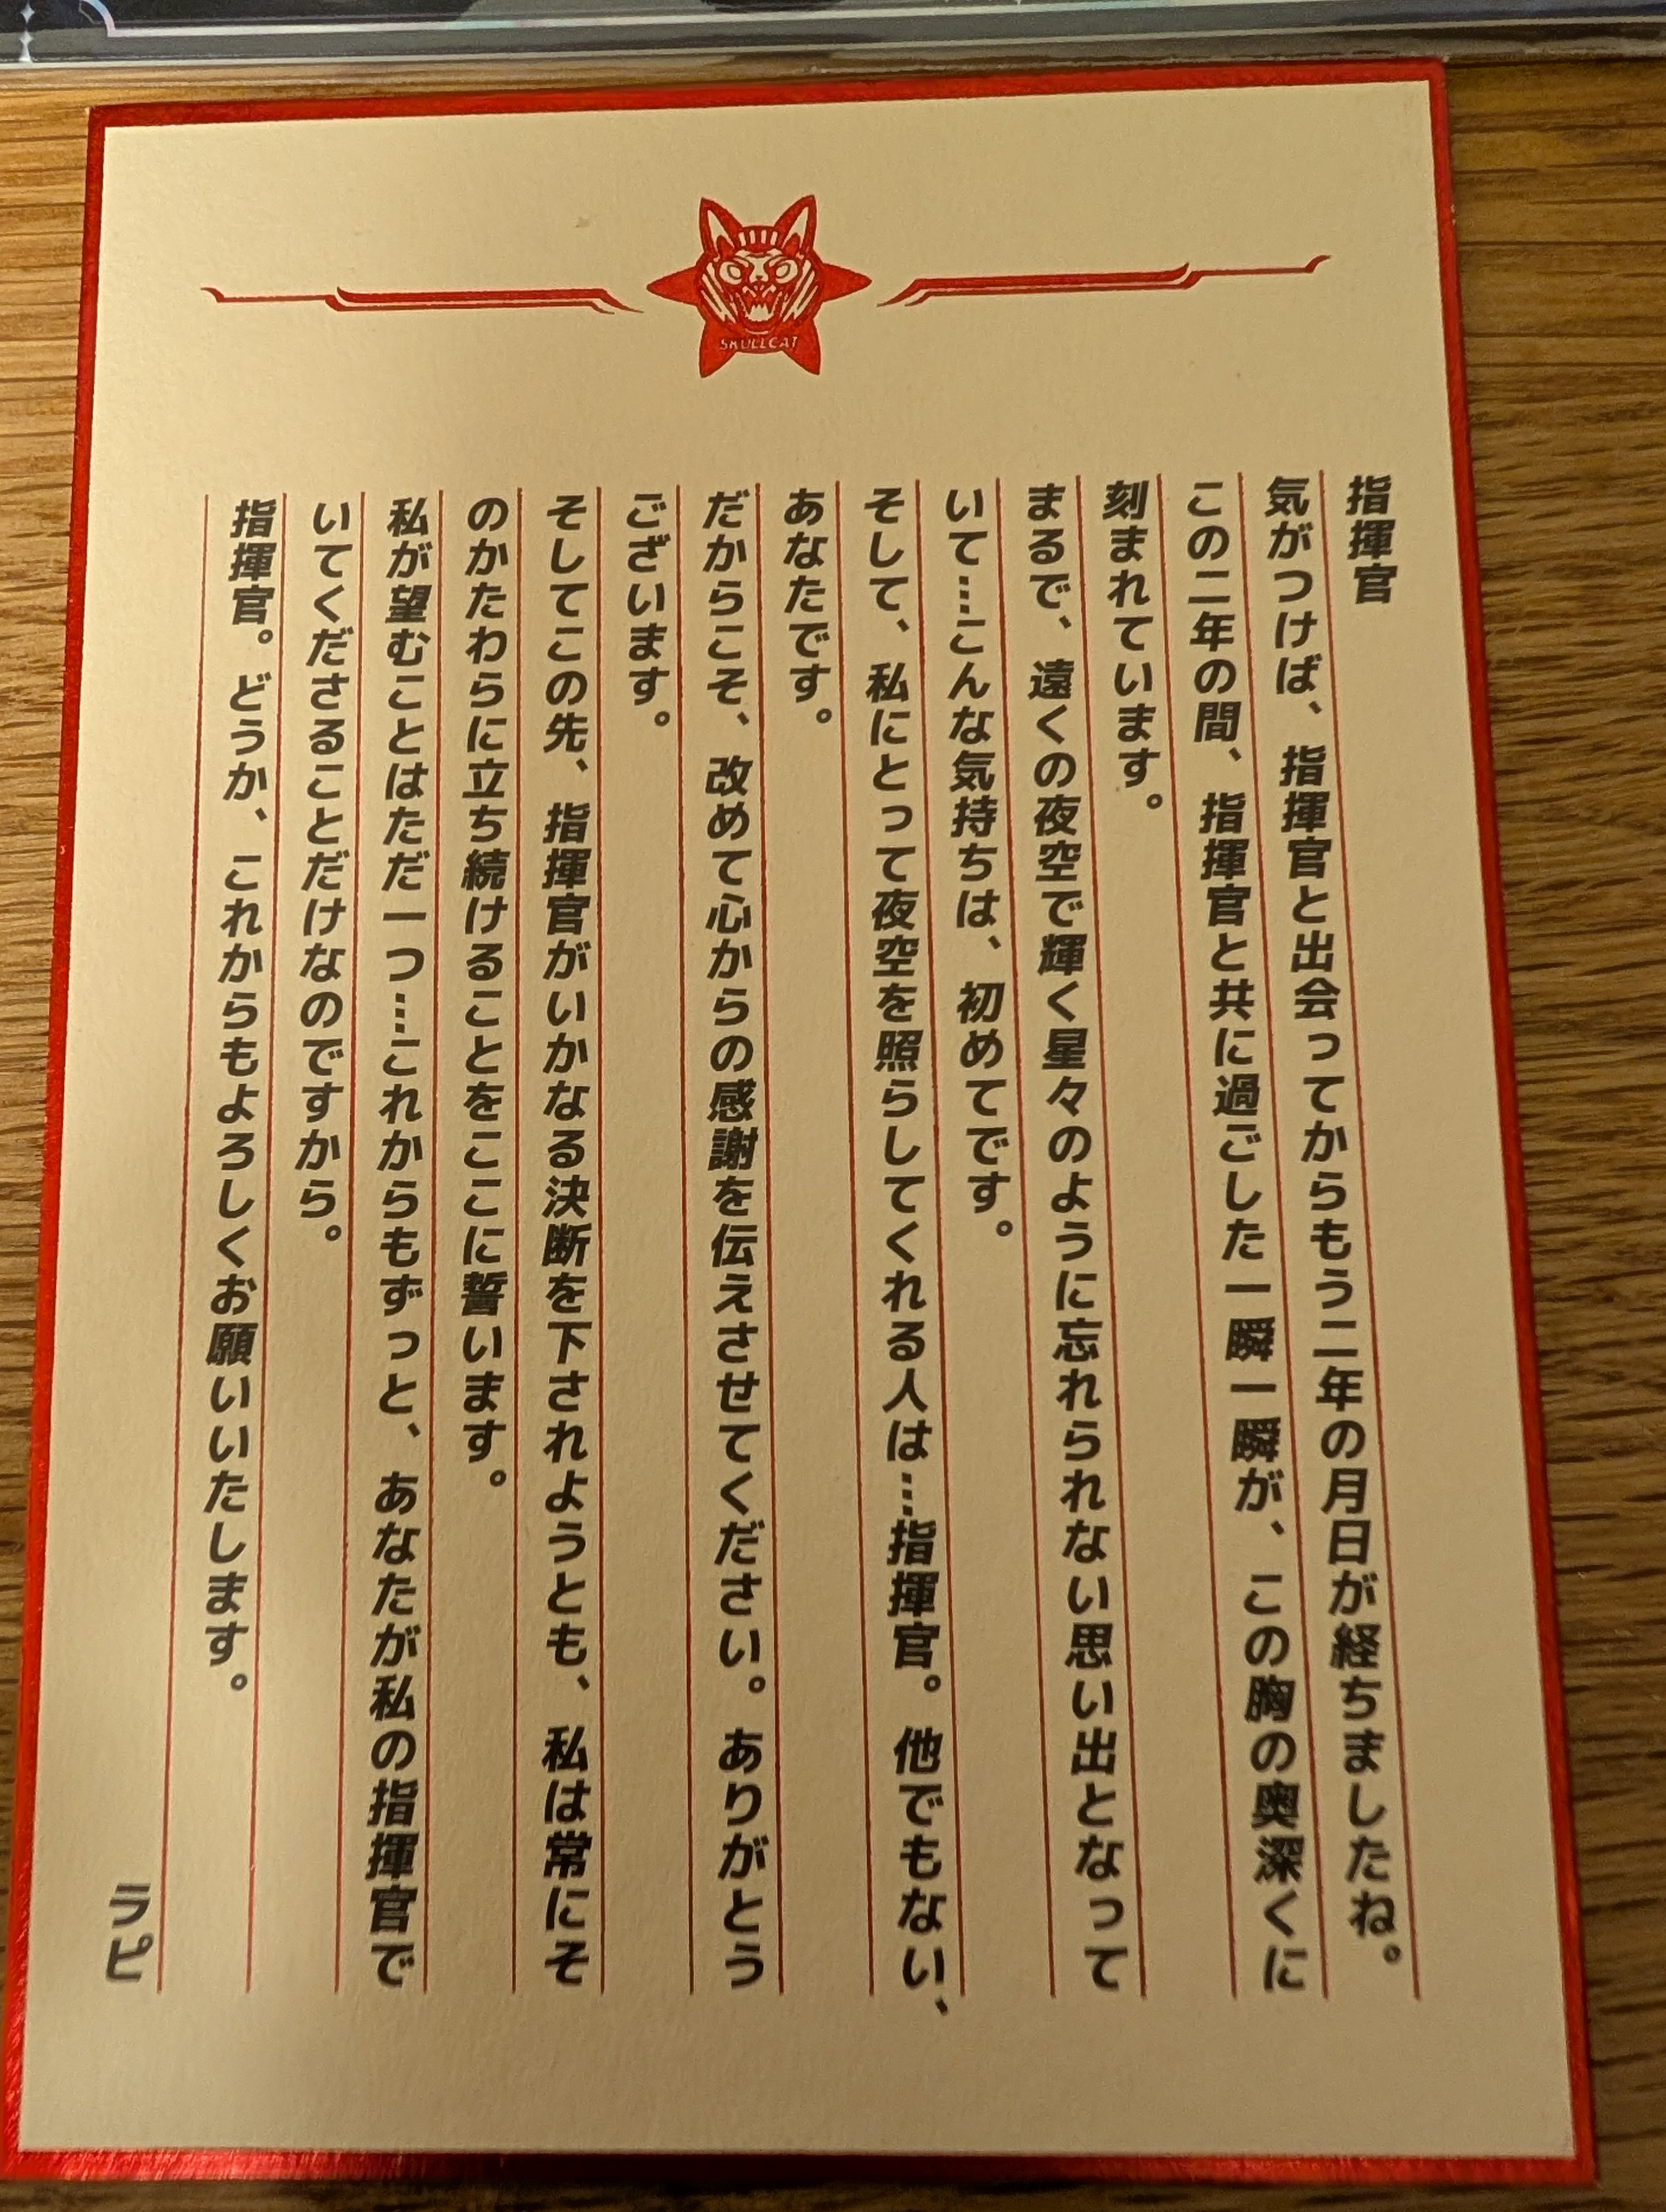 SKULLCAT
指揮官
気がつけば、指揮官と出会ってからもう二年の月日が経ちましたね。
この二年の間、指揮官と共に過ごした一瞬一瞬が、この胸の奥深くに
刻まれています。
まるで、遠くの夜空で輝く星々のように忘れられない思い出となって
いて…こんな気持ちは、初めてです。
そして、私にとって夜空を照らしてくれる人は…指揮官。他でもない、
あなたです。
だからこそ、改めて心からの感謝を伝えさせてください。ありがとう
ございます。
そしてこの先、指揮官がいかなる決断を下されようとも、私は常にそ
のかたわらに立ち続けることをここに誓います。
私が望むことはただ一つ…これからもずっと、あなたが私の指揮官で
いてくださることだけなのですから。
指揮官。どうか、これからもよろしくお願いいたします。
ラピ